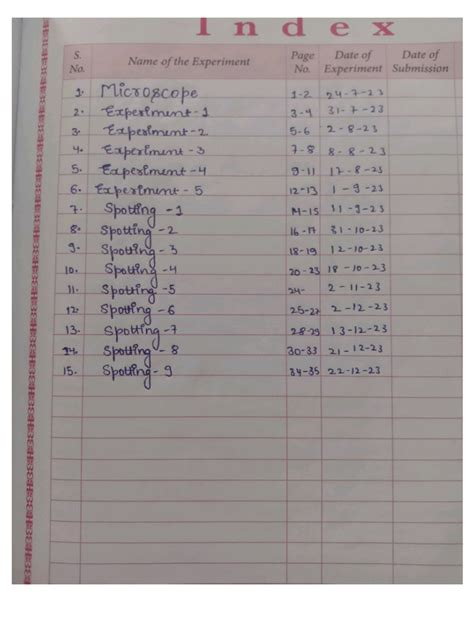 Index
S. No. Name of the Experiment Page No. Date of Experiment Date of Submission
1. Microscope 1-2 24-7-23
2. Experiment-1 3-4 31-7-23
3. Experiment-2 5-6 2-8-23
4. Experiment-3 7-8 8-8-23
5. Experiment-4 9-11 17-8-23
6. Experiment-5 12-13 1-9-23
7. Spotting-1 14-15 11-9-23
8. Spotting-2 16-17 31-10-23
9. Spotting-3 18-19 12-10-23
10. Spotting-4 20-23 18-10-23
11. Spotting-5 24- 2-11-23
12. Spotting-6 25-27 2-12-23
13. Spotting-7 28-29 13-12-23
14. Spotting-8 30-33 21-12-23
15. Spotting-9 34-35 22-12-23